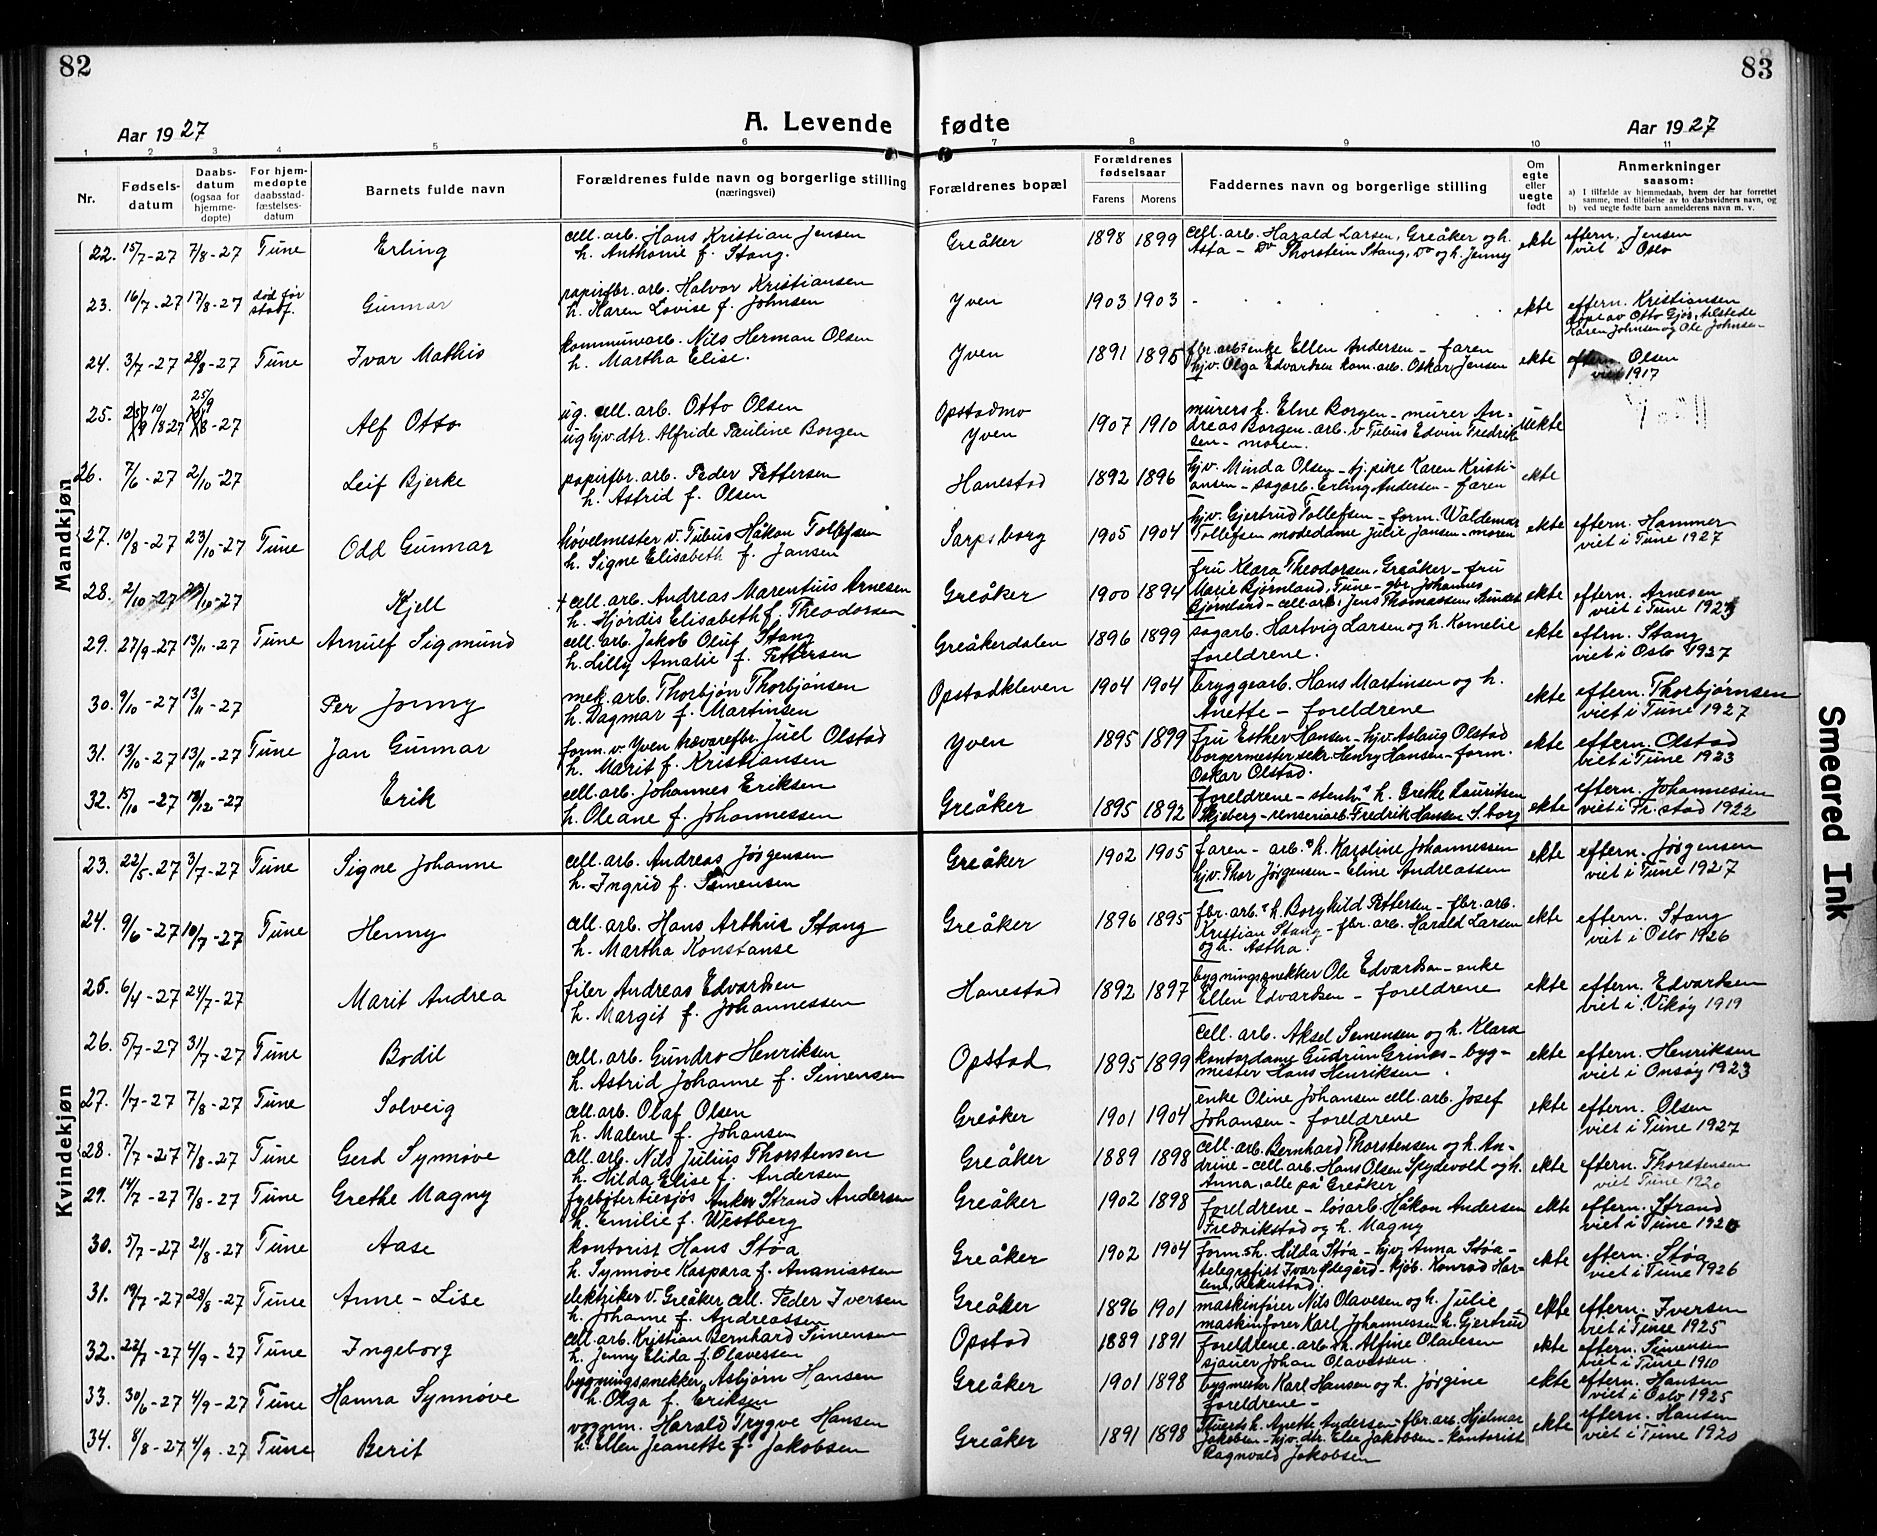 82
83
Aar 1927
A. Levende fødte
Aar 1927
1 2 3 4 5 6 7 8 9 10 11
Nr.
Fødsels-
datum
Daabs-
datum
(ogsaa for
hjemme-
døpte)
For hjem-
medøpte
daabsstad-
fæstelses-
datum
Barnets fulde navn
Forældrenes fulde navn og borgerlige stilling
(næringsvei)
Forældrenes bopæl
Forældrenes
fødselsaar
Farens Morens
Faddernes navn og borgerlige stilling
Om
egte
eller
uegte
født
Anmerkninger
saasom:
a) I tilfælde av hjemmedaab, hvem der har forrettet
samme, med tilføielse av to daabsvidners navn, og
b) ved uegte fødte barn anmelderens navn m. v.
Mandkjøn
22. 15/7-27 7/8-27 Tune Erling
cell. arb. Hans Kristian Jensen
h. Anthonie f. Stang.
Greåker 1898 1899
cell. arb. Harald Larsen, Greåker og h.
Asta - Do Thorstein Stang, Do og h. Jenny
ekte
eftern. Jensen
viet i Oslo
23. 16/7-27 17/8-27
død før
stadf.
Gunnar
papirfbr. arb. Halvor Kristiansen
h. Karen Lovise f. Johnsen
Yven 1903 1903 -
ekte
eftern. Kristiansen
døpt av Otto Gjøs, tilstede
Karen Johnsen og Ole Johnsen
24. 3/7-27 28/8-27 Tune Ivar Mathis
kommunearb. Nils Herman Olsen
h. Martha Elise.
Yven 1891 1895
fbr. arb. enke Ellen Andersen - faren
hjv. Olga Edvardsen kom. arb. Oskar Jensen
ekte
eftern. Olsen
viet 1917
25. 10/8-27 25/9-27 Alf Otto
ug. cell. arb. Otto Olsen
ug hjv. dtr. Alfride Pauline Borgen
Opstadmo
Yven
1907 1910
murers h. Elne Borgen - murer An-
dreas Borgen - arb. v Tubus Edvin Fredrik-
sen - moren.
uekte
26. 7/6-27 2/10-27 Leif Bjerke
papirfbr. arb. Peder Pettersen
h. Astrid f. Olsen
Hanestad 1892 1896
hjv. Minda Olsen - tj. pike Karen Kristi-
ansen - sagarb. Erling Andersen - faren
ekte
27. 10/8-27 23/10-27 Tune Odd Gunnar
høvelmester v. Tubus Håkon Tollefsen
h. Signe Elisabeth f. Jansen
Sarpsborg 1905 1904
hjv. Gjertrud Tollefsen - form. Waldemar
Tollefsen modedame Julie Jansen - moren
ekte
eftern. Hammer
viet i Tune 1927
28. 2/10-27 /10-27 Kjell
+ cell. arb. Andreas Marentius Arnesen
h. Hjørdis Elisabeth f. Theodorsen
Greåker 1900 1894
fru Klara Theodorsen, Greåker - fru
Marie Bjørnland, Tune - gbr. Johannes
Bjørnland - cell. arb. Jens Thomassen,
ekte
eftern. Arnesen
viet i Tune 1923
29. 27/9-27 13/11-27 Tune Arnulf Sigmund
cell. arb. Jakob Oluf Stang
h. Lilly Amalie f. Pettersen
Greåkerdalen 1896 1899
sagarb. Hartvig Larsen og h. Kornelie
foreldrene.
ekte
eftern. Stang
viet i Oslo 1927
30. 9/10-27 13/11-27 Per Jonny
mek. arb. Thorbjørn Thorbjønsen
h. Dagmar f. Martinsen
Opstadkleven 1904 1904
bryggearb. Hans Martinsen og h.
Anette - foreldrene
ekte
eftern. Thorbjørnsen
viet i Tune 1927
31. 13/10-27 13/11-27 Tune Jan Gunnar
form. v. Yven trævarefbr. Juel Olstad
h. Marit f. Kristiansen
Yven 1895 1899
fru Esther Hansen - hjv. Aslaug Olstad
borgermester sekr. Henry Hansen - form.
Oskar Olstad.
ekte
eftern. Olstad
viet i Tune 1923
32. 15/10-27 18/12-27 Erik
cell. arb. Johannes Eriksen
h. Oleane f. Johannessen
Greåker 1895 1892
foreldrene - stenh. h. Grethe Lauritsen
Skjeberg - renseriarb. Fredrik Hansen S.borg
ekte
eftern. Johannessen
viet i Fr.stad 1922
Kvindekjøn
23. 22/5-27 3/7-27 Tune Signe Johanne
cell. arb. Andreas Jørgensen
h. Ingrid f. Simensen
Greåker 1902 1905
faren - arb. h. Karoline Johannessen
hjv. Thor Jørgensen - Eline Andreassen
ekte
eftern. Jørgensen
viet i Tune 1927
24. 9/6-27 10/7-27 Tune Henny
cell. arb. Hans Arthur Stang
h. Martha Konstanse
Greåker 1896 1895
fbr. arb. h. Borghild Pettersen - fbr. arb.
Kristian Stang - fbr. arb. Harald Larsen
og h. Astha.
ekte
eftern. Stang
viet i Oslo 1926
25. 6/4-27 24/7-27 Marit Andrea
filer Andreas Edvardsen
h. Margit f. Johannessen
Hanestad 1892 1897
bygningssnekker Ole Edvardsen - enke
Ellen Edvardsen - foreldrene
ekte
eftern. Edvardsen
viet i Vikøy 1919
26. 5/7-27 31/7-27 Tune Bodil
cell. arb. Gundro Henriksen
h. Astrid Johanne f. Simensen
Opstad 1895 1899
cell. arb. Aksel Simensen og h. Klara
kontordame Gudrun Grinås - byg-
mester Hans Henriksen
ekte
eftern. Henriksen
viet i Onsøy 1923
27. 1/7-27 7/8-27 Tune Solveig
cell. arb. Olaf Olsen
h. Malene f. Johansen
Greåker 1901 1904
enke Oline Johansen cell. arb. Josef
Johansen - foreldrene
ekte
eftern. Olsen
viet i Tune 1927
28. 7/7-27 7/8-27 Tune Gerd Synnøve
cell. arb. Nils Julius Thorstensen
h. Hilda Elise f. Andersen
Greåker 1889 1898
cell. arb. Bernhard Thorstensen og h. An-
drine - cell. arb. Hans Olsen Spydevold og h.
Anna, alle på Greåker
ekte
eftern. Thorstensen
viet Tune 1920
29. 14/7-27 7/8-27 Tune Grethe Magny
fyrbøter tilsjøs Anker Strand Andersen
h. Emilie f. Westberg
Greåker 1902 1898
foreldrene - løsarb. Håkon Andersen
Fredrikstad og h. Magny
ekte
eftern. Strand
viet i Tune 1920
30. 5/7-27 21/8-27 Tune Aase
kontorist Hans Støa
h. Synnøve Kaspara f. Ananiassen
Greåker 1902 1904
form. h. Hilda Støa - hjv. Anna Støa -
telegrafist Ivar Ødegård - kjøb. Konrad Har-
lem, Rakkestad.
ekte
eftern. Støa
viet i Tune 1926
31. 19/7-27 28/8-27 Tune Anne - Lise
elektriker v. Greåker cell. Peder Iversen
h. Johanne f. Andreassen
Greåker 1896 1901
maskinfører Nils Olavesen og h. Julie -
maskinfører Karl Johannessen h. Gjertrud
ekte
eftern. Iversen
viet i Tune 1925
32. 22/7-27 4/9-27 Tune Ingeborg
cell. arb. Kristian Bernhard Simensen
h. Jenny Elida f. Olavessen
Opstad 1889 1891
foreldrene - arb. h. Alfine Olavesen
sjauer Johan Olavessen.
ekte
eftern. Simensen
viet i Tune 1910
33. 30/6-27 4/9-27 Tune Hanna Synnøve
bygningssnekker Asbjørn Hansen
h. Olga f. Eriksen
Greåker 1901 1898
bygmester Karl Hansen og h. Jørgine
foreldrene -
ekte
eftern. Hansen
viet i Oslo 1925
34. 8/8-27 4/9-27 Tune Berit
vognm. Harald Trygve Hansen
h. Ellen Jeanette f. Jakobsen
Greåker 1891 1898
Stuerts h. Anette Andersen - fbr. arb. Hjalmar
Jakobsen - hjv. dtr. Else Jakobsen - kontorist
Ragnvald Jakobsen
ekte
eftern. Hansen
viet i Tune 1920
Smeared Ink